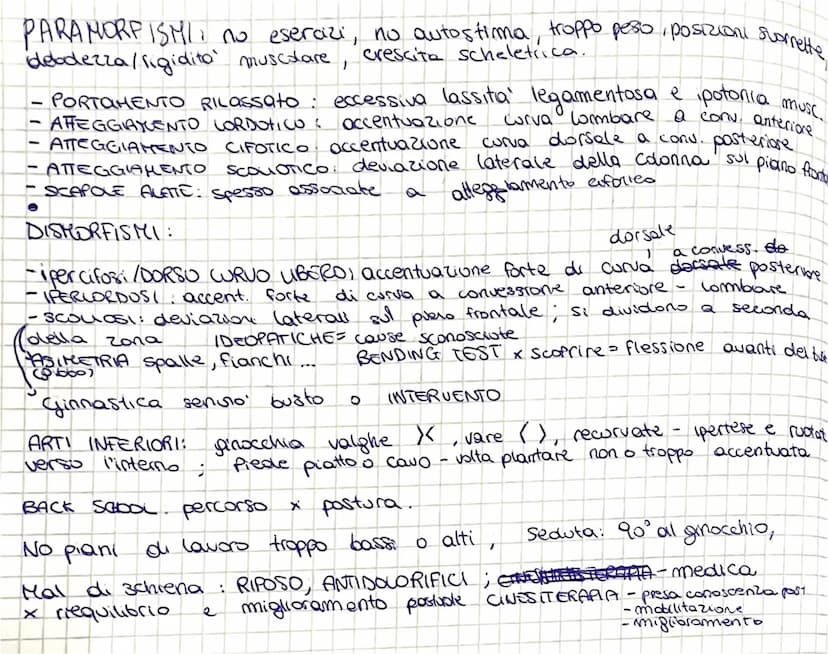 PARAMORFISMI: no esercizi, no autostima, troppo peso, posizioni scorrette,
debolezza/rigidità muscolare, crescita scheletrica.
- PORTAMENTO RILASSATO: eccessiva lassità legamentosa e ipotonia musc.
- ATTEGGIAMENTO LORDOTICO: accentuazione curva lombare a conv. anteriore
- ATTEGGIAMENTO CIFOTICO: accentuazione curva dorsale a conv. posteriore
- ATTEGGIAMENTO SCOLIOTICO: deviazione laterale della colonna sul piano
- SCAPOLE ALATE: spesso associate a atteggiamento cifotico
DISMORFISMI:
dorsale
- ipercifosi/DORSO CURVO LIBERO: accentuazione forte di curva dorsale, a convess. do posteriore
- IPERLORDOSI: accent. forte di curva a convessione anteriore - lombare
- SCOLIOSI: deviazioni laterali sul piano frontale; si dividono a seconda
della zona IDEOPATICHE= cause sconosciute
ASIMETRIA spalle, fianchi... BENDING TEST x scoprire = flessione avanti del
(gibbo)
Ginnastica busto o INTERVENTO
ARTI INFERIORI: ginocchia valghe )(, vare (), recurvate - ipertese e ruotat
verso l'interno; piede piatto o cavo - volta plantare non o troppo accentuata
BACK SCHOOL. percorso x postura.
No piani di lavoro troppo bassi o alti, Seduta: 90° al ginocchio,
Mal di schiena: RIPOSO, ANTIDOLORIFICI; - medica
x riequilibrio e miglioramento posturale CINESITERAPIA - presa conoscenza post
- mobilitazione
- miglioramento